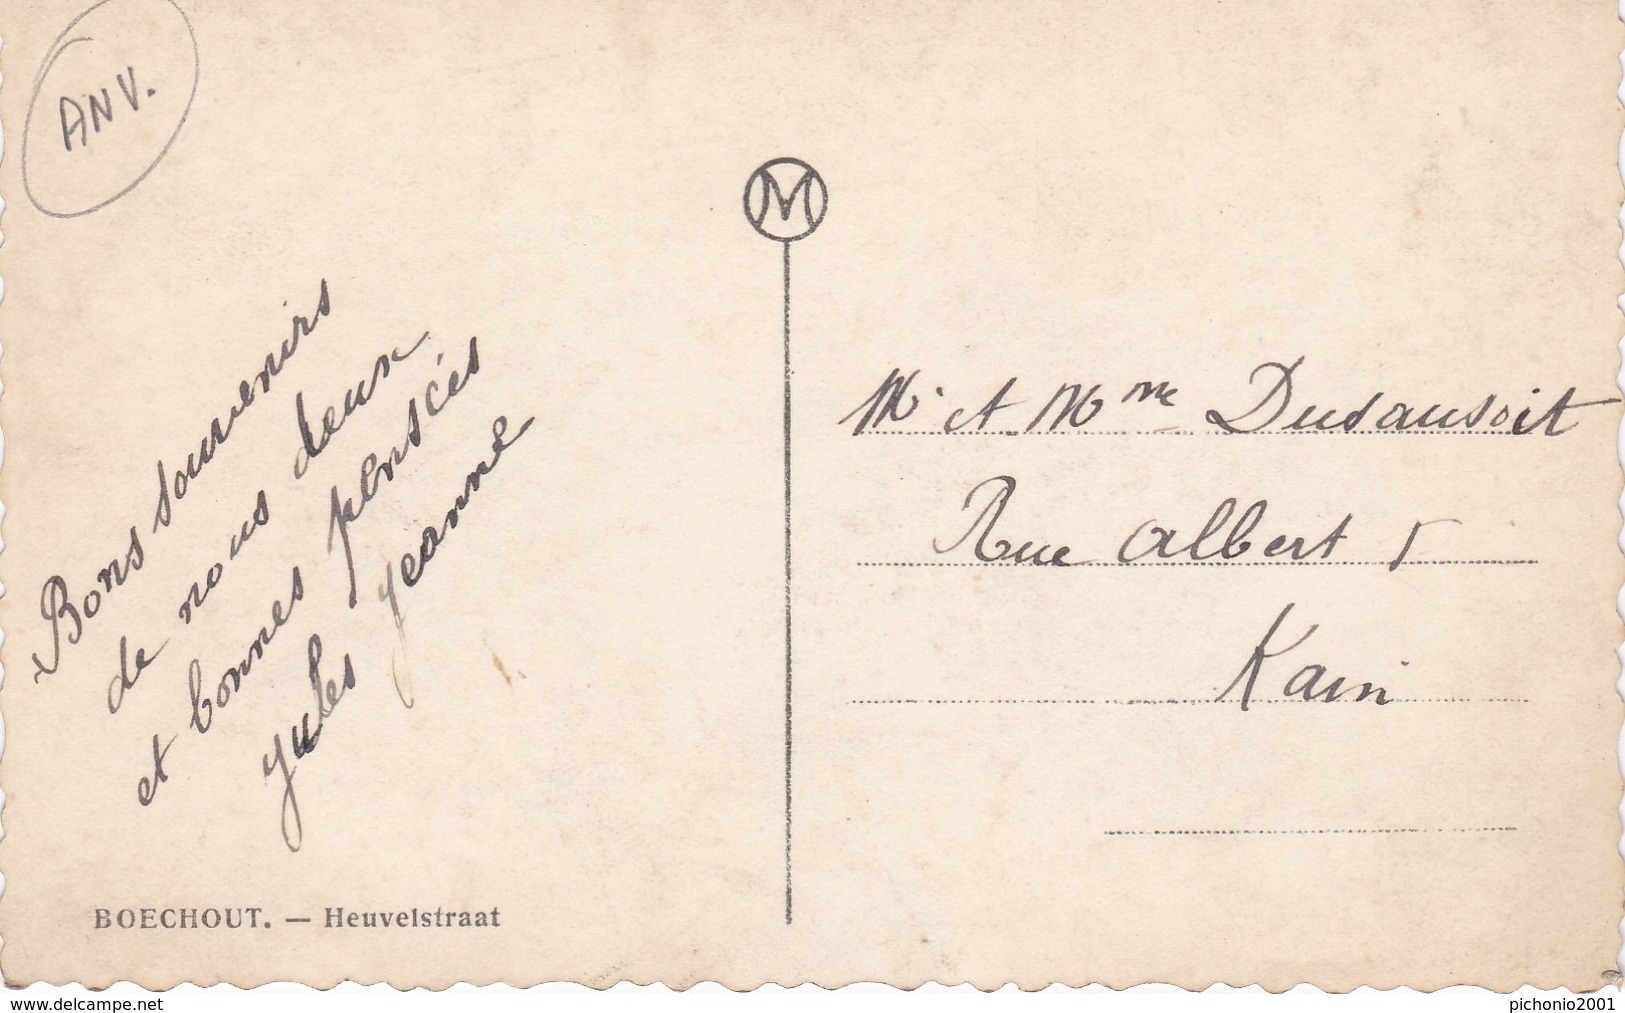 ANV.
M
Bons souvenirs
de nous deux
et bonnes pensées
Jules Jeanne
BOECHOUT. — Heuvelstraat
Mr et Mme Dusausoit
Rue Albert I
Kain
www.delcampe.net
pichonio2001